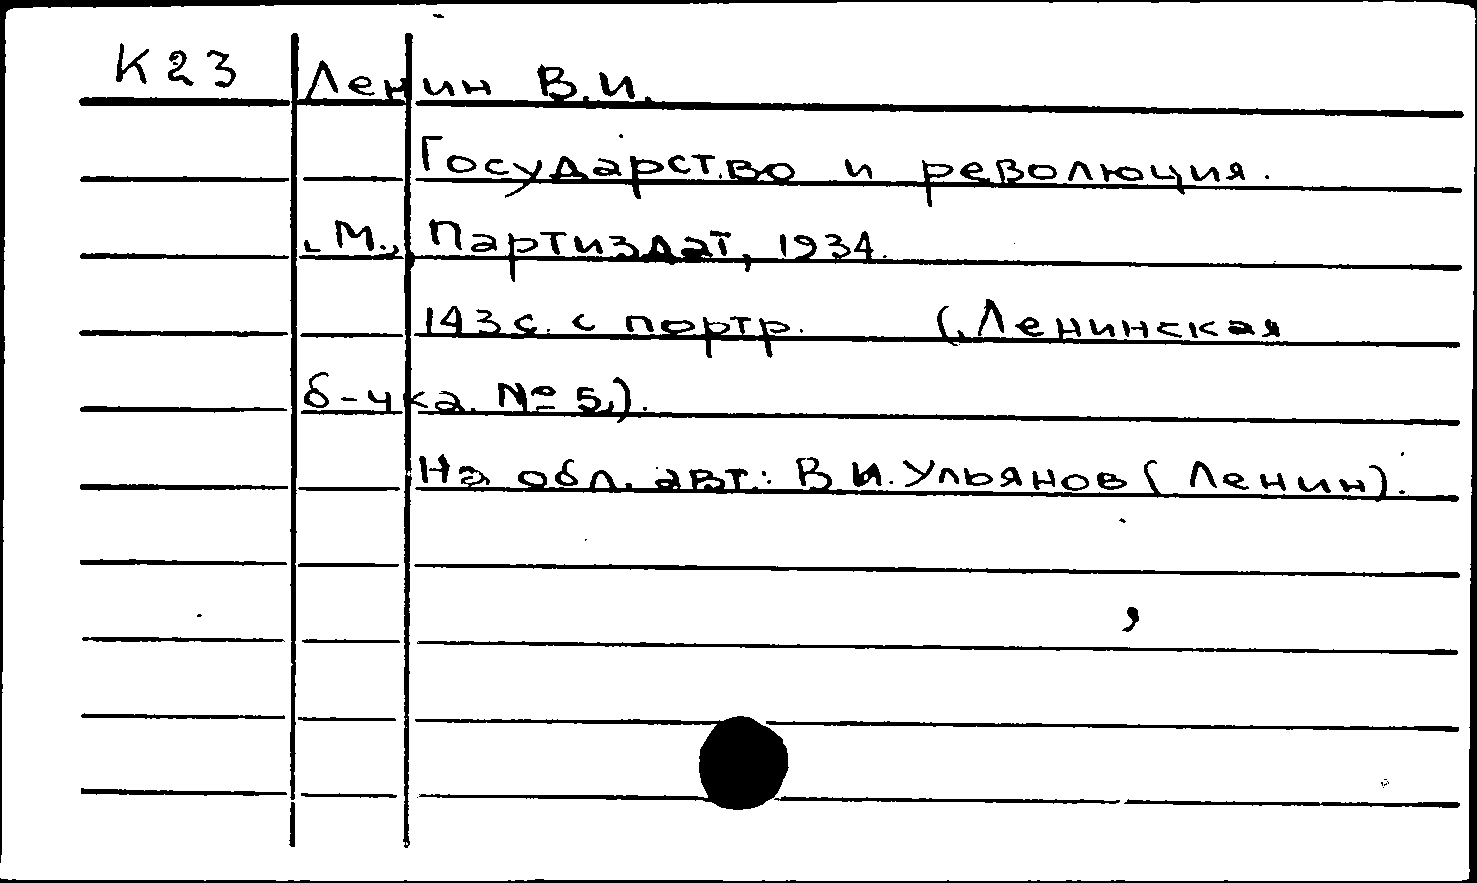 К23 Ленин В.И.
Государство и революция.
М., Партиздат, 1934.
143 с. с портр. (Ленинская
б-чка. № 5).
На обл. авт.: В.И. Ульянов (Ленин).